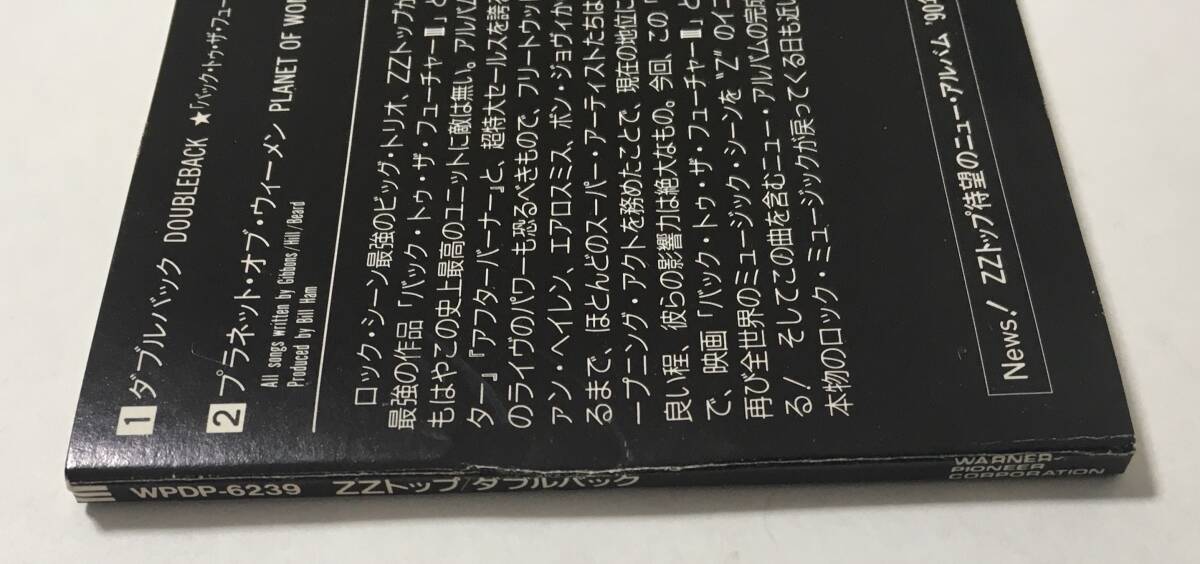 1 ダブルバック DOUBLEBACK ★「バック・トゥ・ザ・フュー
2 プラネット・オブ・ウィーメン PLANET OF WO
All songs written by Gibbons/Hill/Beard
Produced by Bill Ham
ロック・シーン最強のビッグ・トリオ、ZZトップが
最強の作品「バック・トゥ・ザ・フューチャーⅢ」と
もはやこの史上最高のユニットに敵は無い。アルバム
ター』『アフターバーナー』と、超特大セールスを誇る
のライヴのパワーも恐るべきもので、フリートウッド
ァン・ヘイレン、エアロスミス、ボン・ジョヴィか
るまで、ほとんどのスーパー・アーティストたちは
ープニング・アクトを務めたことで、現在の地位に
良い程、彼らの影響力は絶大なもの。今回、この「
で、映画「バック・トゥ・ザ・フューチャーⅢ」と
再び全世界のミュージック・シーンを“Z”のイニ
る！そしてこの曲を含むニュー・アルバムの完成
本物のロック・ミュージックが戻ってくる日も近い
News! ZZトップ待望のニュー・アルバム '90
WPDP-6239 ZZトップ/ダブルバック
WARNER-PIONEER
CORPORATION